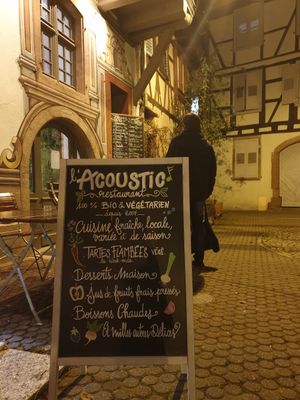 l'Acoustic
restaurant
100 % Bio & VÉGÉTARIEN
depuis 2009
Cuisine fraîche, locale,
variée et de saison
TARTES FLAMBÉES VÉGÉ.
le week-end
Desserts Maison
Jus de fruits frais pressés
Boissons Chaudes
& milles autres Délices!